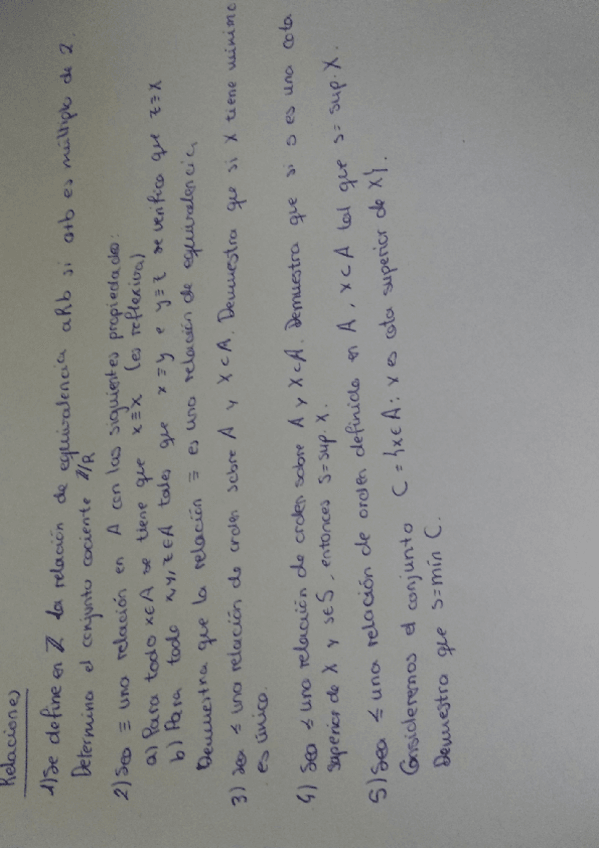 Relaciones
1) Se define en ℤ la relación de equivalencia aRb si a+b es múltiplo de 2.
Determina el conjunto cociente ℤ/R
2) Sea ≡ una relación en A con las siguientes propiedades:
a) Para todo x∈A se tiene que x≡x (es reflexiva)
b) Para todo x,y,z∈A tales que x≡y e y≡z se verifica que z≡x
Demuestra que la relación ≡ es una relación de equivalencia.
3) Sea ≤ una relación de orden sobre A y X⊂A. Demuestra que si X tiene mínimo
es único.
4) Sea ≤ una relación de orden sobre A y X⊂A. Demuestra que si s es una cota
superior de X y s∈S, entonces s=sup. X.
5) Sea ≤ una relación de orden definida en A, X⊂A tal que s=sup. X.
Consideremos el conjunto C={x∈A: x es cota superior de X}.
Demuestra que s=mín C.